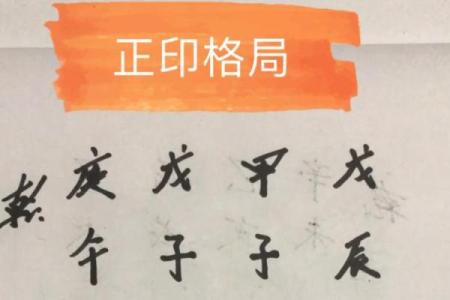 正印格局
庚 戊 甲 戊
乾
午 子 子 辰